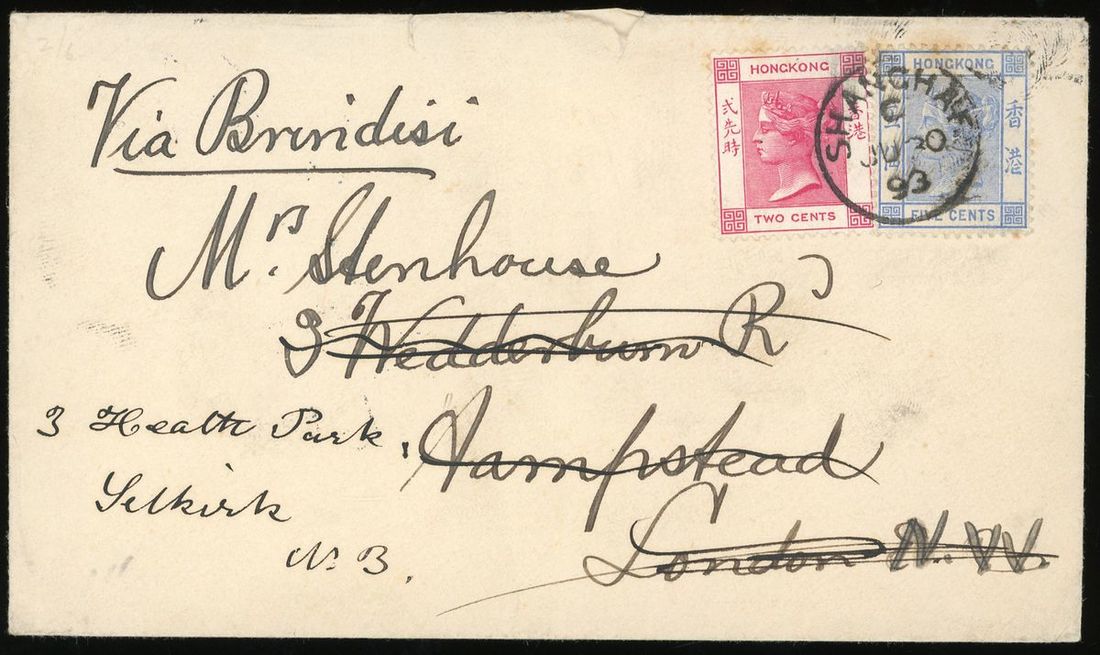 2/6
Via Brindisi
HONGKONG
弍先時
香港
TWO CENTS
HONGKONG
香港
FIVE CENTS
SHANGHAI
C
20
93
Mrs. Stenhouse
3 Wedderburn Rd
Hampstead
London N.W.
3 Heath Park,
Selkirk
N. B.